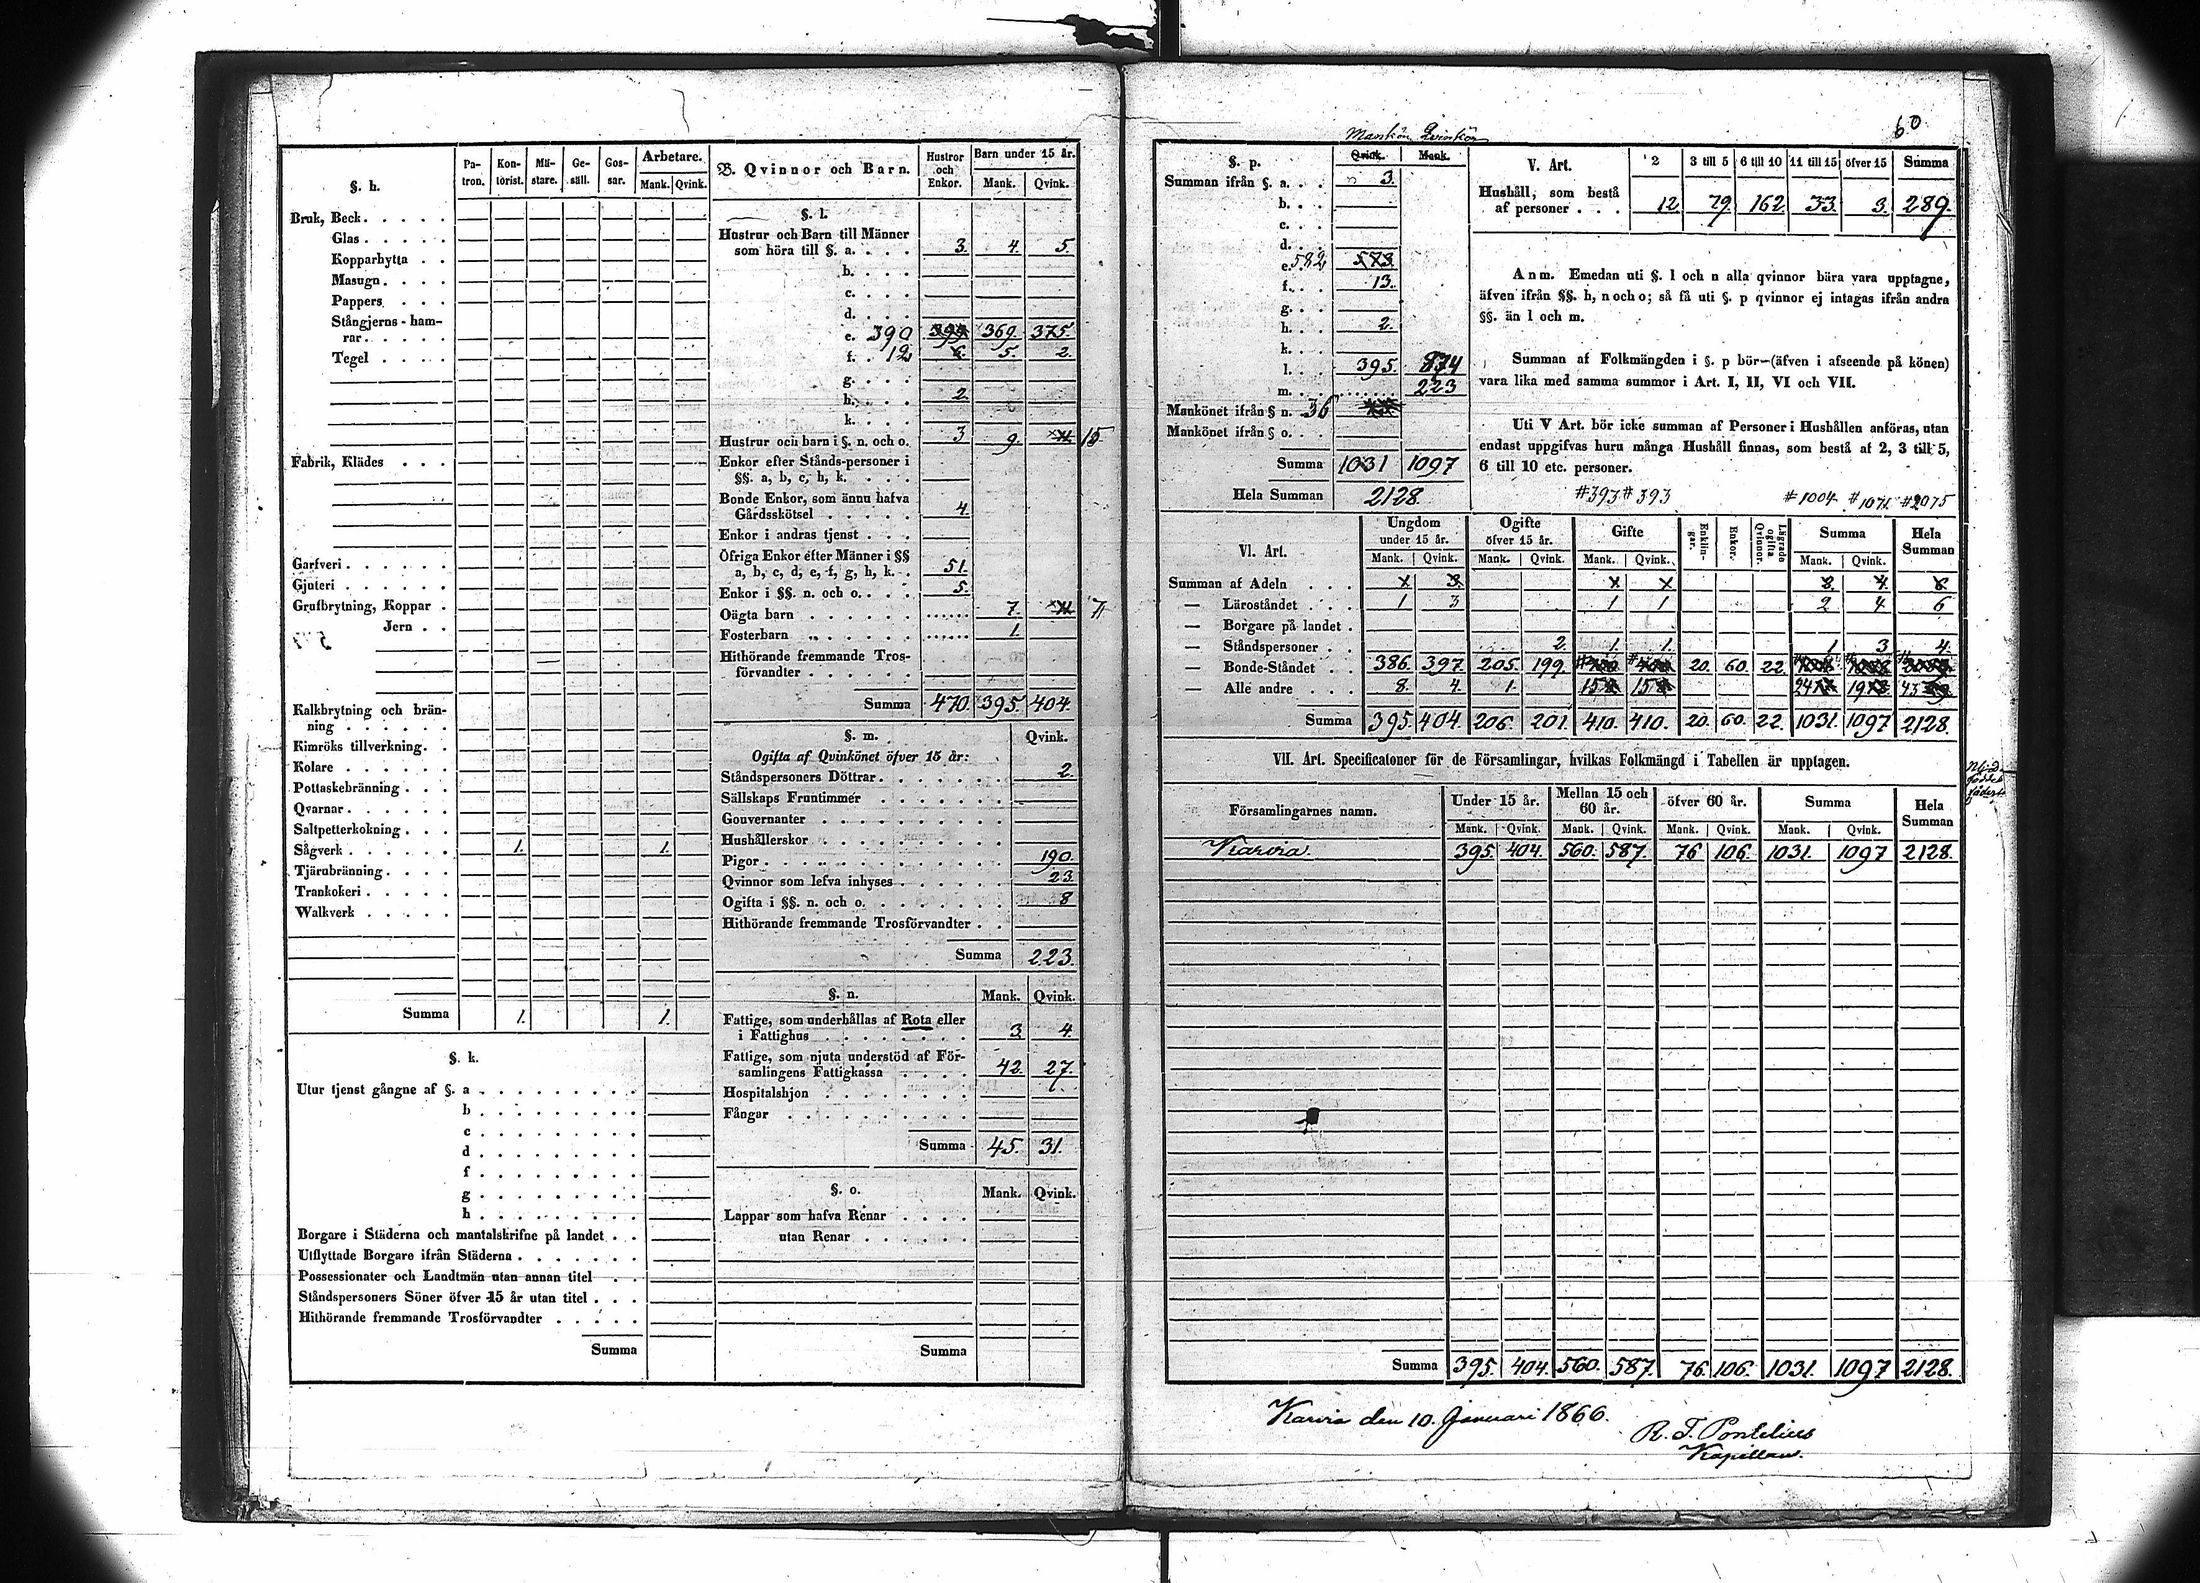 60
§. h.
Pa-tron. Kon-torist. Mä-stare. Ge-säll. Gos-sar. Arbetare.
Mank. Qvink.
Bruk, Beck . . . . .
Glas . . . . .
Kopparhytta . .
Masugn . . . .
Pappers . . . .
Stångjerns-ham-
rar . . . . .
Tegel . . . . .
Fabrik, Klädes . . .
Garfveri . . . . .
Gjuteri . . . . .
Grufbrytning, Koppar .
Jern . .
Kalkbrytning och brän-
ning . . . . .
Kimröks tillverkning . .
Kolare . . . . . .
Pottaskebränning . . .
Qvarnar . . . . . .
Saltpetterkokning . . .
Sågverk . . . . . . 1. 1.
Tjärubränning . . . .
Trankokeri . . . . .
Walkverk . . . . .
Summa 1. 1.
§. k.
Utur tjenst gångne af §. a . . . . . . . .
b . . . . . . . .
c . . . . . . . .
d . . . . . . . .
f . . . . . . . .
g . . . . . . . .
h . . . . . . . .
Borgare i Städerna och mantalskrifne på landet . .
Utflyttade Borgare ifrån Städerna . . . . . .
Possessionater och Landtmän utan annan titel . .
Ståndspersoners Söner öfver 15 år utan titel . . .
Hithörande fremmande Trosförvandter . . . . .
Summa
B. Qvinnor och Barn. Hustror och Enkor. Barn under 15 år.
Mank. Qvink.
§. l.
Hustrur och Barn till Männer
som höra till §. a. . . . 3. 4. 5.
b. . . .
c. . . .
d. . . .
e. 390 369. 375.
f. . 12 5. 2.
g. . . .
h. . . . 2.
k. . . .
Hustrur och barn i §. n. och o. 3 9. 15
Enkor efter Stånds-personer i
§§. a, b, c, h, k. . . .
Bonde Enkor, som ännu hafva
Gårdsskötsel . . . . . 4.
Enkor i andras tjenst . . .
Öfriga Enkor efter Männer i §§
a, b, c, d, e, f, g, h, k. . 51.
Enkor i §§. n. och o. . . . 5.
Oägta barn . . . . . . 7. 7
Fosterbarn „ . . . . . 1.
Hithörande fremmande Tros-
förvandter . . . . . .
Summa 470. 395. 404.
§. m. Qvink.
Ogifta af Qvinkönet öfver 15 år:
Ståndspersoners Döttrar . . . . . . 2.
Sällskaps Fruntimmer . . . . . . .
Gouvernanter . . . . . . . . .
Hushållerskor . . . . . . . . .
Pigor . . . . . . . . . . . 190.
Qvinnor som lefva inhyses . . . . . 23.
Ogifta i §§. n. och o. . . . . . . 8
Hithörande fremmande Trosförvandter . .
Summa 223.
§. n. Mank. Qvink.
Fattige, som underhållas af Rota eller
i Fattighus . . . . . . . . 3. 4.
Fattige, som njuta understöd af För-
samlingens Fattigkassa . . . . 42. 27.
Hospitalshjon . . . . . . . .
Fångar . . . . . . . . . .
Summa 45. 31.
§. o. Mank. Qvink.
Lappar som hafva Renar . . . .
utan Renar . . . . . .
Summa
Mankön Qvinkön
§. p. Qvink. Mank.
Summan ifrån §. a. . . 3.
b. . .
c. . .
d. . .
e. 582 573.
f. . . 13.
g. . .
h. . . 2.
k. . .
l. . . 395. 874
m. . . . . . . . 223
Mankönet ifrån § n. 36
Mankönet ifrån § o. . .
Summa 1031 1097
Hela Summan 2128.
V. Art. 2 3 till 5 6 till 10 11 till 15 öfver 15 Summa
Hushåll, som bestå
af personer . . . 12. 79. 162. 33. 3. 289.
Anm. Emedan uti §. l och n alla qvinnor bära vara upptagne,
äfven ifrån §§. h, n och o; så få uti §. p qvinnor ej intagas ifrån andra
§§. än l och m.
Summan af Folkmängden i §. p bör (äfven i afseende på könen)
vara lika med samma summor i Art. I, II, VI och VII.
Uti V Art. bör icke summan af Personer i Hushållen anföras, utan
endast uppgifvas huru många Hushåll finnas, som bestå af 2, 3 till 5,
6 till 10 etc. personer.
#393 #393 #1004. #1071. #2075
VI. Art. Ungdom under 15 år. Ogifte öfver 15 år. Gifte Enklin-gar. Enkor. Lägrade ogifta Qvinnor. Summa Hela Summan
Mank. Qvink. Mank. Qvink. Mank. Qvink. Mank. Qvink.
Summan af Adeln . . .
— Läroståndet . . . 1 3 1 1 2 4 6
— Borgare på landet .
— Ståndspersoner . . 2. 1. 1. 1 3 4.
— Bonde-Ståndet . . 386. 397. 205. 199. 20. 60. 22.
— Alle andre . . . 8. 4. 1.
Summa 395. 404. 206. 201. 410. 410. 20. 60. 22. 1031. 1097 2128.
VII. Art. Specificationer för de Församlingar, hvilkas Folkmängd i Tabellen är upptagen.
Församlingarnes namn. Under 15 år. Mellan 15 och 60 år. öfver 60 år. Summa Hela Summan
Mank. Qvink. Mank. Qvink. Mank. Qvink. Mank. Qvink.
Karvia. 395. 404. 560. 587. 76 106. 1031. 1097 2128.
Summa 395. 404. 560. 587. 76. 106. 1031. 1097 2128.
Karvia den 10. Januari 1866.
R. T. Pontelius
Kapellan.